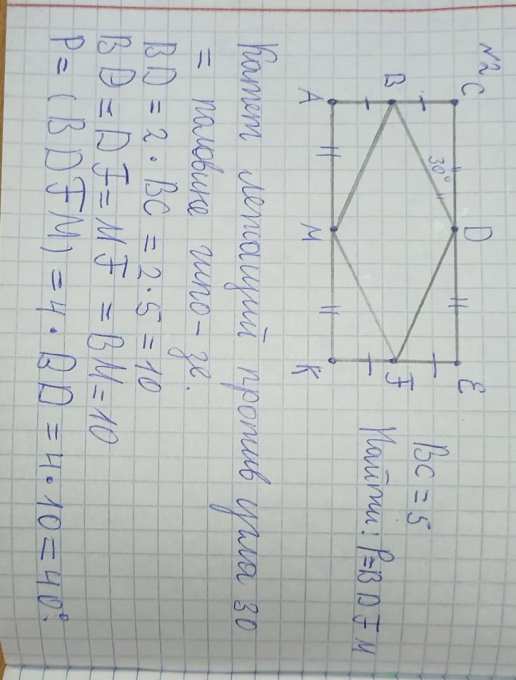 №2
C
D
E
30°
B
F
A
M
K
BC = 5
Найти: P=BDFM
Катет лежащий против угла 30
= половине гипо-зе.
BD = 2 · BC = 2 · 5 = 10
BD = DF = MF = BM = 10
P = (BDFM) = 4 · BD = 4 · 10 = 40°.